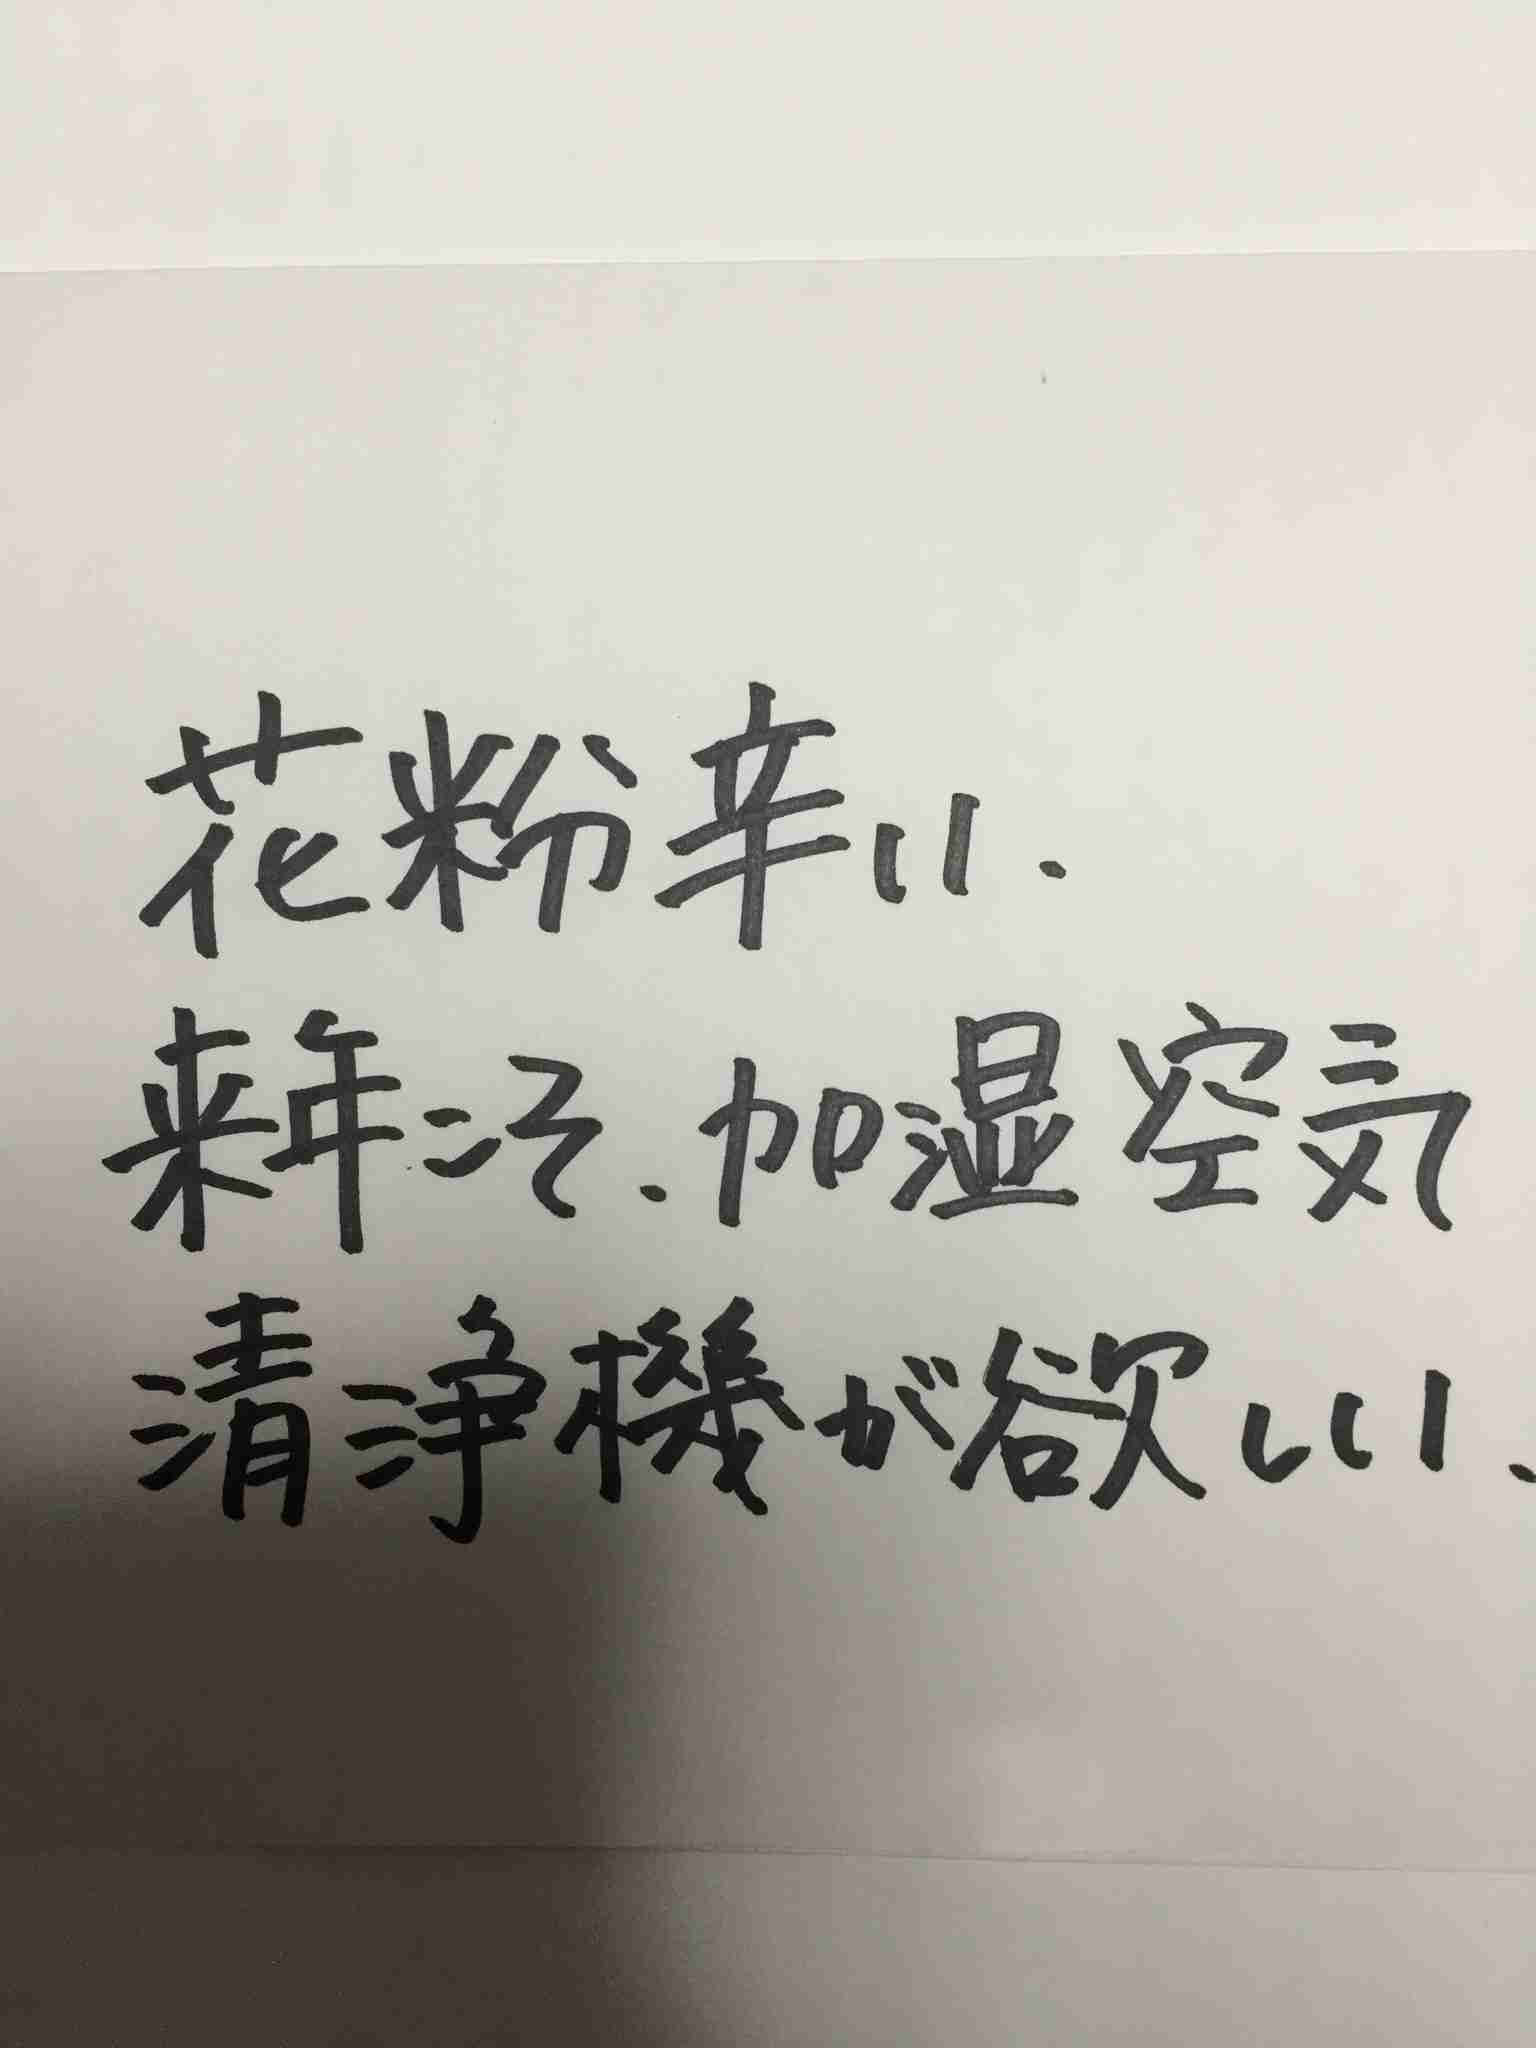 花粉辛い.
来年こそ、加湿空気
清浄機が欲しい、